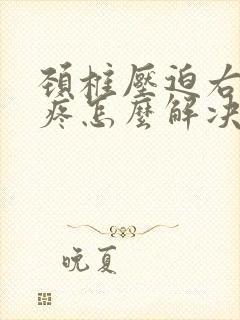 頸椎壓迫右
疼怎麼解決
晚夏